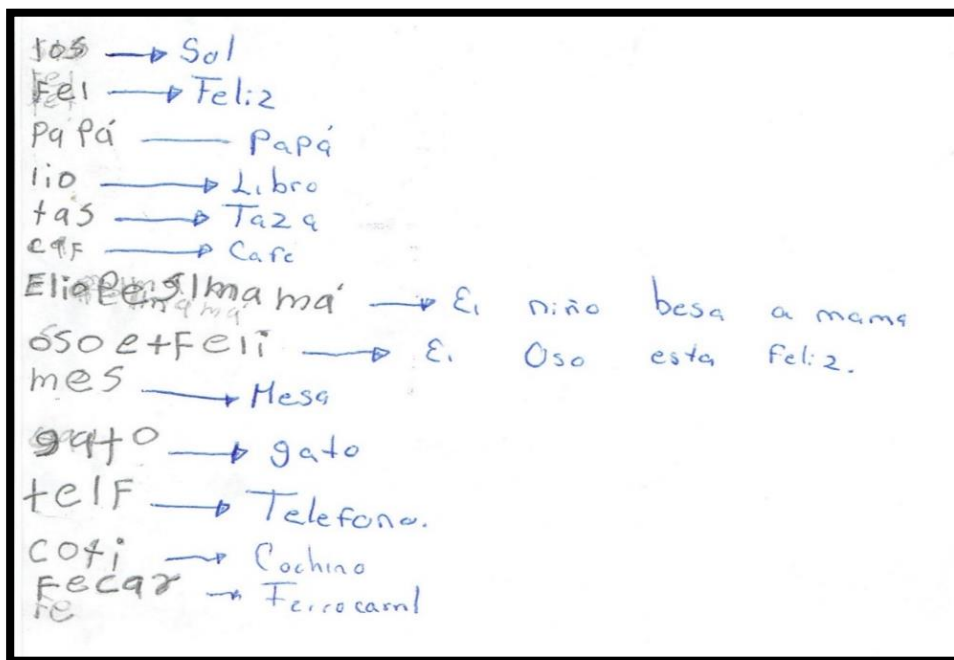 sos → Sol
Fel → Feliz
papá — Papá
lio → Libro
tas → Taza
caF → Cafe
ElioPesImamá → El niño besa a mama
óso etFeli → El Oso esta feliz.
mes → Mesa
gato → gato
telF → Telefono.
coti → Cochino
Fecar → Ferrocarril
Fe